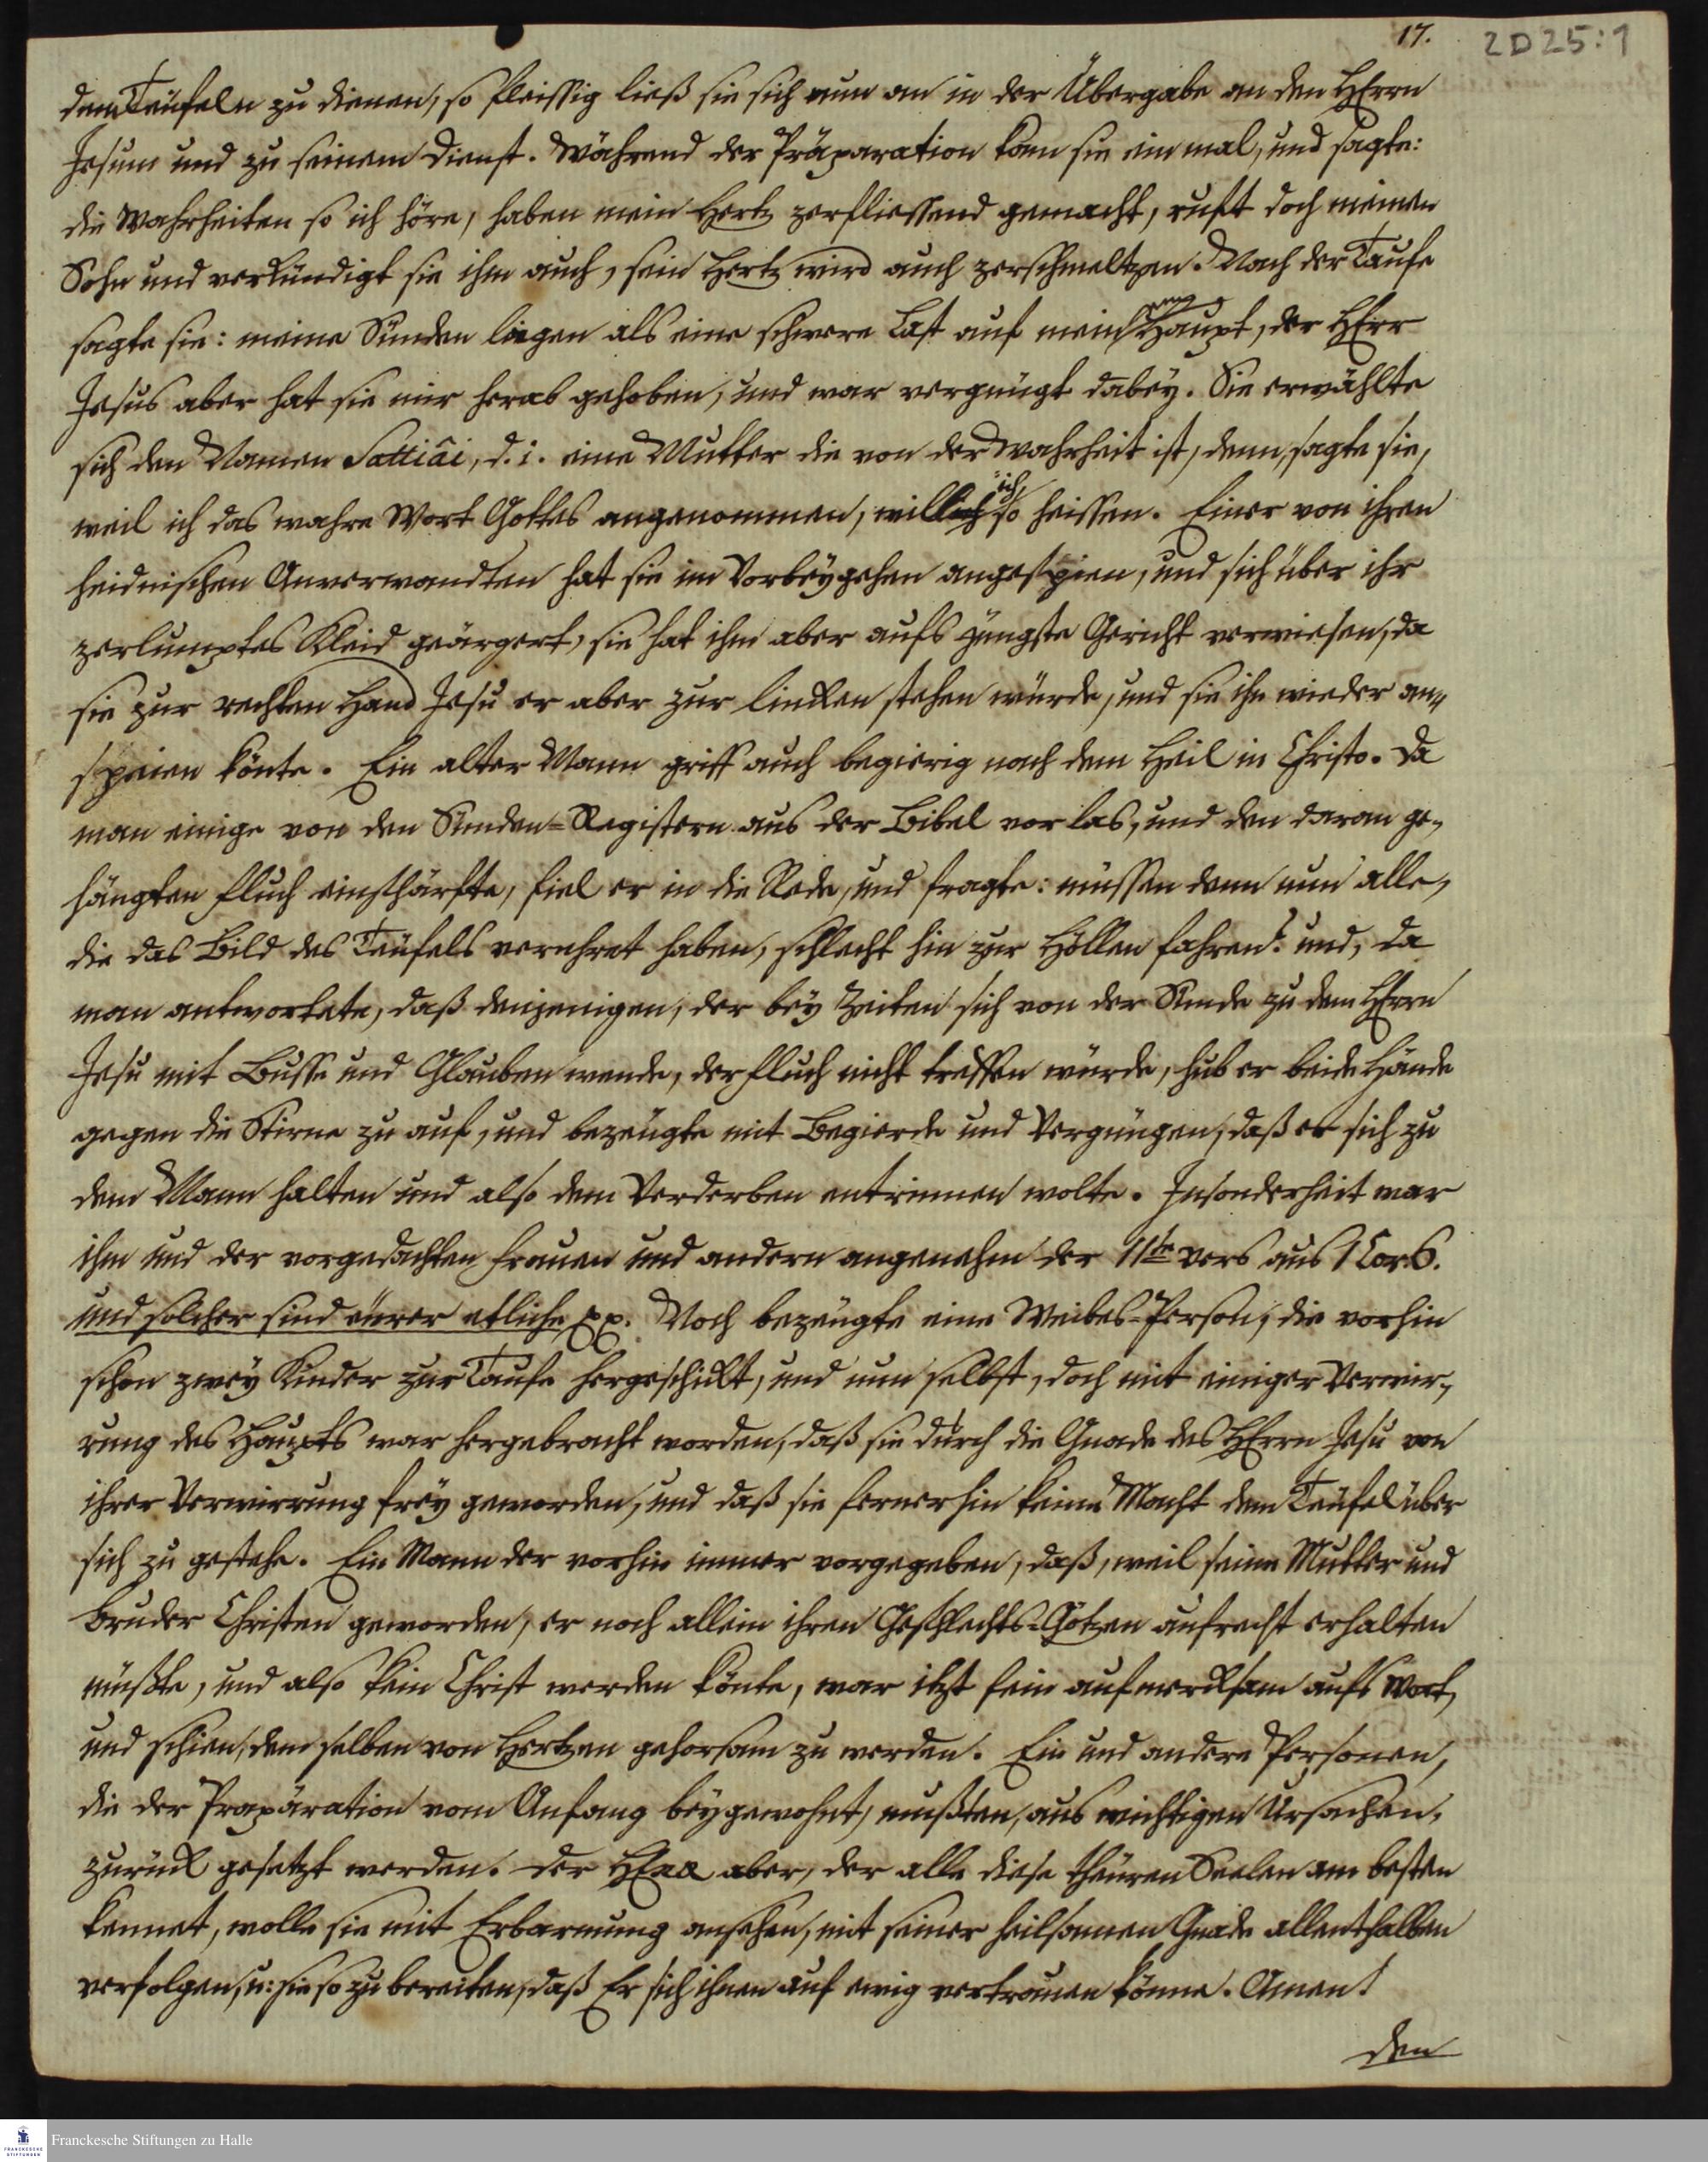 17.
2D25:1
dem Teüfeln zu dienen, so fleissig ließ sie sich nun an in der Übergabe an den HErrn
Jesum und zu seinem Dienst. Während der Präparation kam sie einmal, und sagte:
die Wahrheiten so ich höre, haben mein Hertz zerfliessend gemacht, ruft doch meinen
Sohn und verkündigt sie ihm auch, sein Hertz wird auch zerschmeltzen. Nach der Taufe
sagte sie: meine Sünden liegen als eine schwere Last auf mein Haupt, der HErr
Jesus aber hat sie mir herab gehoben, und war vergnügt dabey. Sie erwählte
sich den Namen Sattiâi, d. i. eine Mutter die von der Wahrheit ist, denn, sagte sie,
weil ich das wahre Wort Gottes angenommen, will ich so heissen. Einer von ihren
heidnischen Anverwandten hat sie im Vorbeygehen angespien, und sich über ihr
zerlumptes Kleid geärgert, sie hat ihn aber aufs jüngste Gericht verwiesen, da
sie zur rechten Hand Jesu er aber zur lincken stehen würde, und sie ihn wieder an-
speien könte. Ein alter Mann griff auch begierig nach dem Heil in Christo. Da
man einige von den Sünden-Registern aus der Bibel vorlas, und den daran ge-
hängten Fluch einschärfte, fiel er in die Rede, und fragte: müssen denn nun alle,
die das Bild des Teüfels verehret haben, schlecht hin zur Höllen fahren? und, da
man antwortete, daß denjenigen, der bey Zeiten sich von der Sünde zu dem HErrn
Jesu mit Busse und Glauben wende, der Fluch nicht treffen würde, hub er beide Hände
gegen die Stirne zu auf, und bezeügte mit Begierde und Vergnügen, daß er sich zu
dem Mann halten und also dem Verderben entrinnen wolte. Insonderheit war
ihm und der vorgedachten Frauen und andern angenehm der 11te vers aus 1 Cor. 6.
und solcher sind eürer etliche pp. Noch bezeügte eine Weibes-Person, die vorhin
schon zwey Kinder zur Taufe hergeschickt, und nun selbst, doch mit einiger Verwir-
rung des Haupts war hergebracht worden, daß sie durch die Gnade des HErrn Jesu von
ihrer Verwirrung frey geworden, und daß sie fernerhin keine Macht dem Teüfel über
sich zu gestehe. Ein Mann der vorhin immer vorgegeben, daß, weil seine Mutter und
Bruder Christen geworden, er noch allein ihren Geschlechts-Götzen aufrecht erhalten
müßte, und also kein Christ werden könte, war itzt fein aufmercksam aufs Wort,
und schien, demselben von Hertzen gehorsam zu werden. Ein und andere Personen,
die der Präparation vom Anfang beygewohnt, mußten, aus wichtigen Ursachen,
zurück gesetzt werden. Der HErr aber, der alle diese theüren Seelen am besten
kennet, wolle sie mit Erbarmung ansehen, mit seiner heilsamen Gnade allenthalben
verfolgen, u: sie so zu bereiten, daß Er sich ihnen auf ewig vertrauen könne. Amen!
den
FRANCKESCHE STIFTUNGEN
Franckesche Stiftungen zu Halle